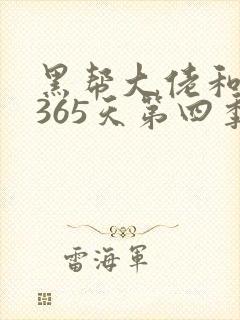 黑帮大佬和
365天第四季
雷海軍